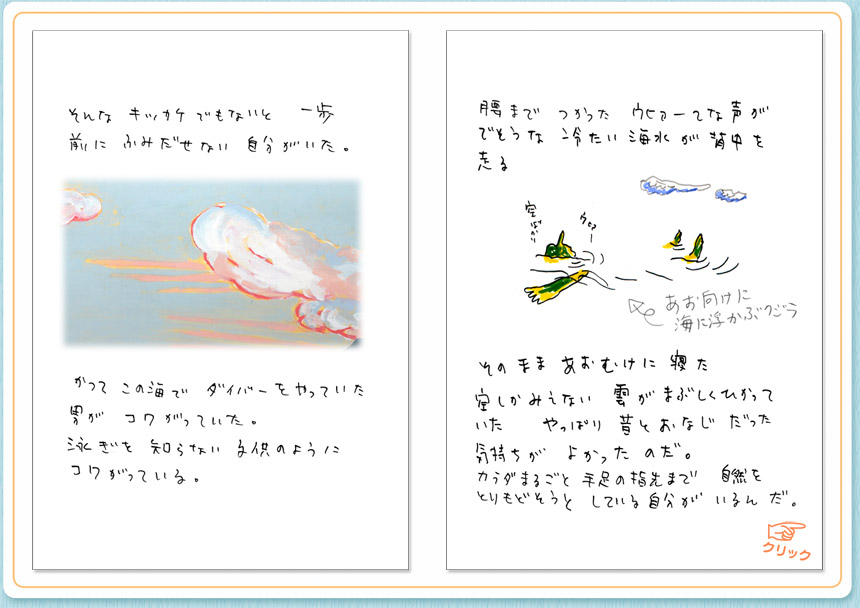 そんな キッカケでもないと 一歩
前に ふみだせない 自分がいた。
かつて この海で ダイバーをやっていた
男が コワがっていた。
泳ぎを 知らない 子供のように
コワがっている。
腰まで つかった ウヒァーてな声が
でそうな 冷たい 海水が 背中を
走る
空ばかり
ウヒァー
あお向けに
海に浮かぶクジラ
そのまま あおむけに 寝た
空しかみえない 雲がまぶしくひかって
いた やっぱり 昔とおなじ だった
気持ちが よかった のだ。
カラダまるごと 手足の指先まで 自然を
とりもどそうと している自分が いるんだ。
クリック